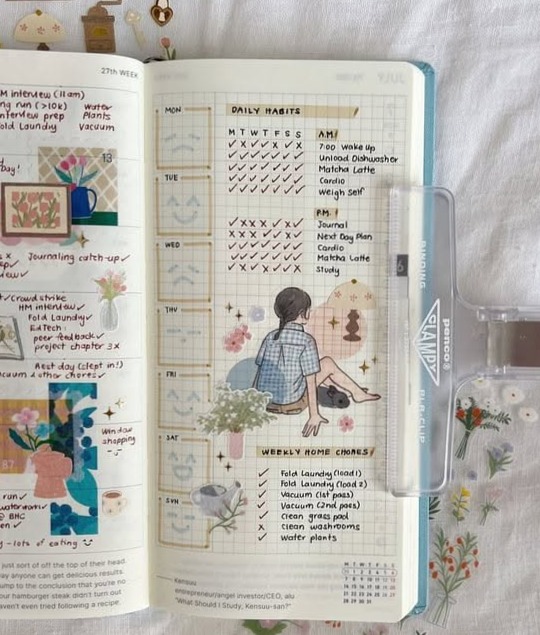 27th WEEK
M interview (11am)
ng run (>10k) Water
nterview prep Plants
old Laundry Vacuum
Day!
13
x Journaling catch-up ✓
ep✓
iew✓
t/Crowdstrike
HM interview✓
Fold Laundry✓
EdTech:
peer feedback✓
project chapter 3x
Rest day (slept in!)
acuum & other chores✓
window
shopping
87
run ✓
@ BHC
y - lots of eating
just sort of off the top of their head.
ay anyone can get delicious results.
ump to the conclusion that you're no
our hamburger steak didn't turn out
aven't even tried following a recipe.
MON
TUE
WED
THU
FRI
SAT
SUN
DAILY HABITS
M T W T F S S A.M.
✓ x ✓ ✓ x ✓ x 7:00 wake up
✓ ✓ ✓ ✓ ✓ ✓ ✓ Unload Dishwasher
✓ ✓ ✓ ✓ ✓ ✓ ✓ Matcha Latte
✓ ✓ ✓ ✓ ✓ ✓ ✓ Cardio
✓ ✓ ✓ ✓ ✓ ✓ ✓ Weigh Self
P.M.
✓ x x x ✓ x ✓ Journal
x x ✓ ✓ ✓ ✓ ✓ Next Day Plan
✓ ✓ ✓ ✓ ✓ ✓ ✓ Cardio
✓ ✓ ✓ ✓ ✓ ✓ ✓ Matcha Latte
Study
WEEKLY HOME CHORES
✓ Fold Laundry (load 1)
✓ Fold Laundry (load 2)
✓ Vacuum (1st pass)
✓ Vacuum (2nd pass)
✓ Clean grass pad
x Clean washrooms
✓ Water plants
Kensuu
entrepreneur/angel investor/CEO, alu
"What Should I Study, Kensuu-san?"
6
penco®
CLAMPY